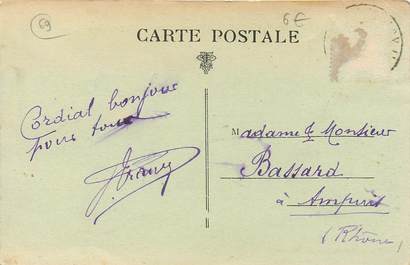 69
6€
CARTE POSTALE
Cordial bonjour
pour tous
Madame & Monsieur
Bassard
à Ampuis
(Rhône)